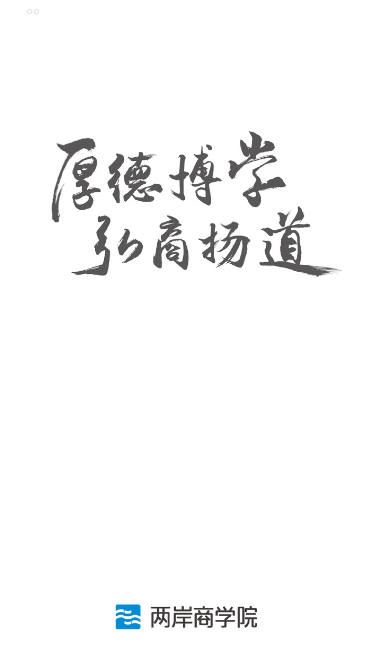 厚德博学
弘商扬道
两岸商学院